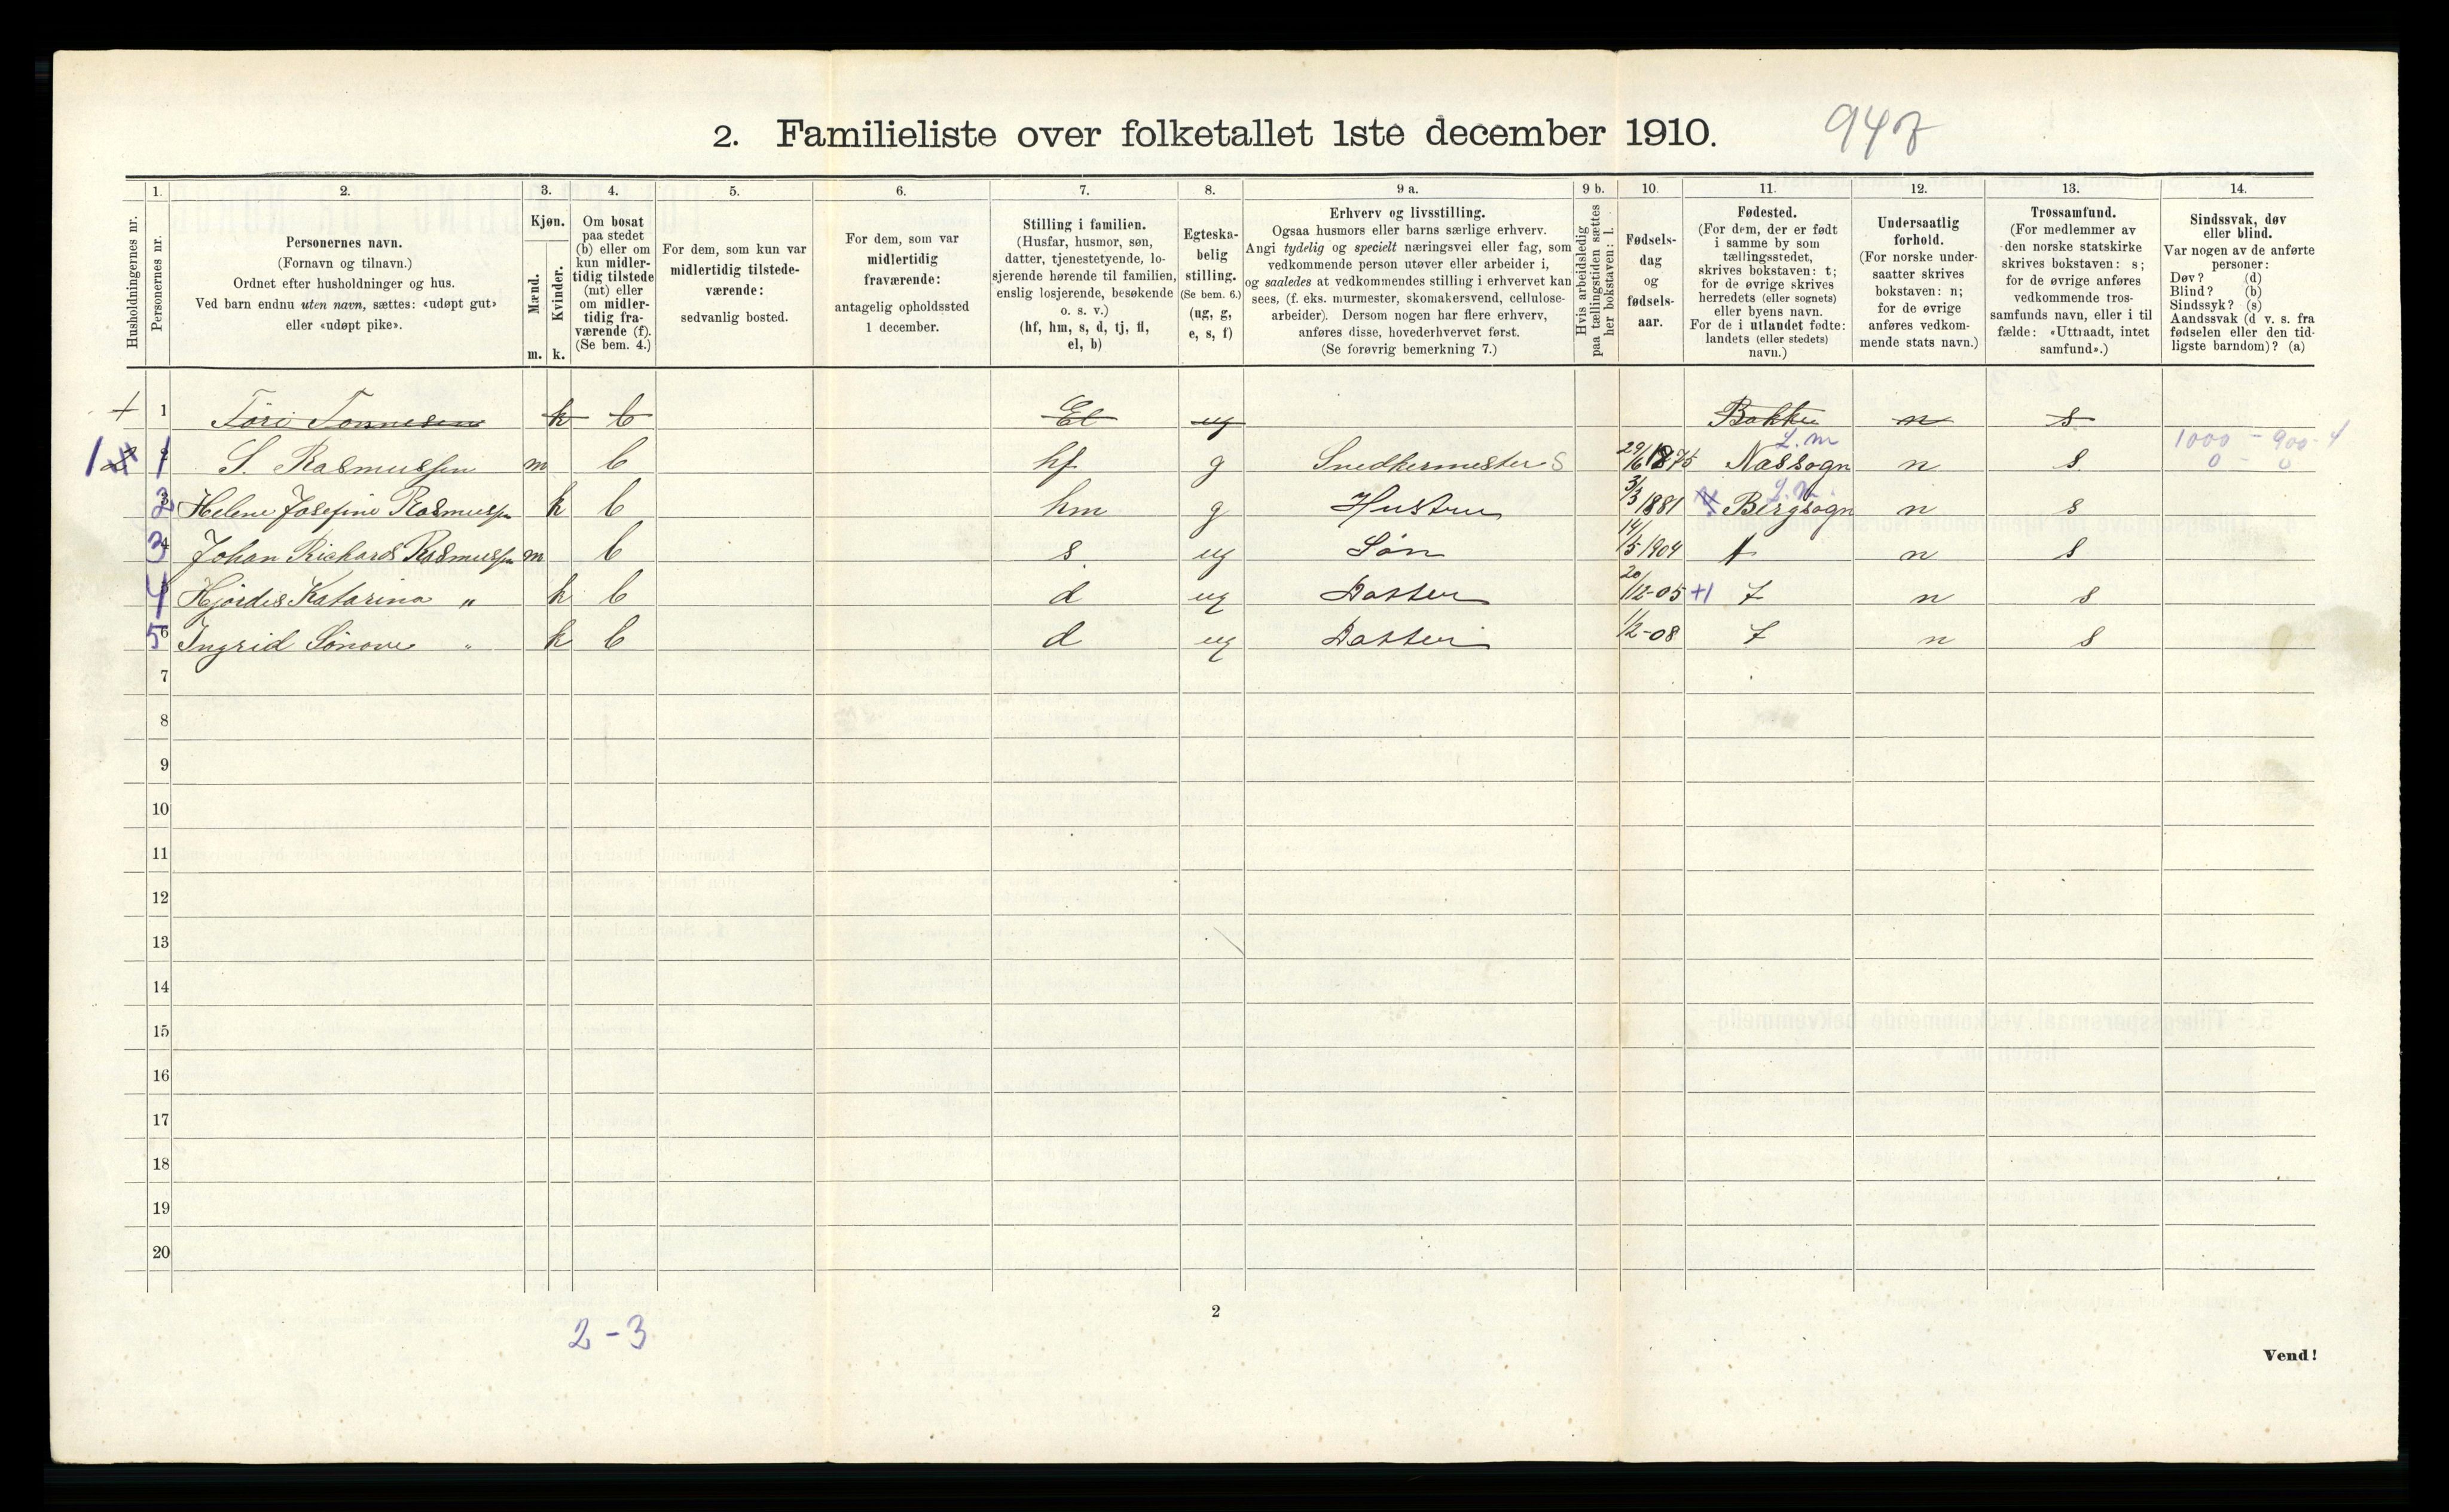 2. Familieliste over folketallet 1ste december 1910.
947
Husholdningernes nr.
1.
Personernes nr.
2.
Personernes navn.
(Fornavn og tilnavn.)
Ordnet efter husholdninger og hus.
Ved barn endnu uten navn, sættes: «udøpt gut»
eller «udøpt pike».
3.
Kjøn.
Mænd.
m.
Kvinder.
k.
4.
Om bosat
paa stedet
(b) eller om
kun midler-
tidig tilstede
(mt) eller
om midler-
tidig fra-
værende (f).
(Se bem. 4.)
5.
For dem, som kun var
midlertidig tilstede-
værende:
sedvanlig bosted.
6.
For dem, som var
midlertidig
fraværende:
antagelig opholdssted
1 december.
7.
Stilling i familien.
(Husfar, husmor, søn,
datter, tjenestetyende, lo-
sjerende hørende til familien,
enslig losjerende, besøkende
o. s. v.)
(hf, hm, s, d, tj, fl,
el, b)
8.
Egteska-
belig
stilling.
(Se bem. 6.)
(ug, g,
e, s, f)
9 a.
Erhverv og livsstilling.
Ogsaa husmors eller barns særlige erhverv.
Angi tydelig og specielt næringsvei eller fag, som
vedkommende person utøver eller arbeider i,
og saaledes at vedkommendes stilling i erhvervet kan
sees, (f. eks. murmester, skomakersvend, cellulose-
arbeider). Dersom nogen har flere erhverv,
anføres disse, hovederhvervet først.
(Se forøvrig bemerkning 7.)
9 b.
Hvis arbeidsledig
paa tællingstiden sættes
her bokstaven: l.
10.
Fødsels-
dag
og
fødsels-
aar.
11.
Fødested.
(For dem, der er født
i samme by som
tællingsstedet,
skrives bokstaven: t;
for de øvrige skrives
herredets (eller sognets)
eller byens navn.
For de i utlandet fødte:
landets (eller stedets)
navn.)
12.
Undersaatlig
forhold.
(For norske under-
saatter skrives
bokstaven: n;
for de øvrige
anføres vedkom-
mende stats navn.)
13.
Trossamfund.
(For medlemmer av
den norske statskirke
skrives bokstaven: s;
for de øvrige anføres
vedkommende tros-
samfunds navn, eller i til
fælde: «Uttraadt, intet
samfund».)
14.
Sindssvak, døv
eller blind.
Var nogen av de anførte
personer:
Døv? (d)
Blind? (b)
Sindssyk? (s)
Aandssvak (d v. s. fra
fødselen eller den tid-
ligste barndom)? (a)
1 Tönnesen k b El ug Bakke n s
1 1 S. Rasmussen m b hf g Snedkermester S 29/6 1875 Næssogn n s 1000 - 900 - 4
L.m 0 - 0
2 Helene Josefine Rasmussen k b hm g Hustru 3/3 1881 Bergsogn n s
3 Johan Richard Rasmussen m b s ug Sön 14/5 1904 t n s
4 Hjördis Katarina " k b d ug Datter 20/12-05 +1 t n s
5 Ingrid Sönove " k b d ug Datter 1/2-08 t n s
7
8
9
10
11
12
13
14
15
16
17
18
19
20
2
2-3
Vend!